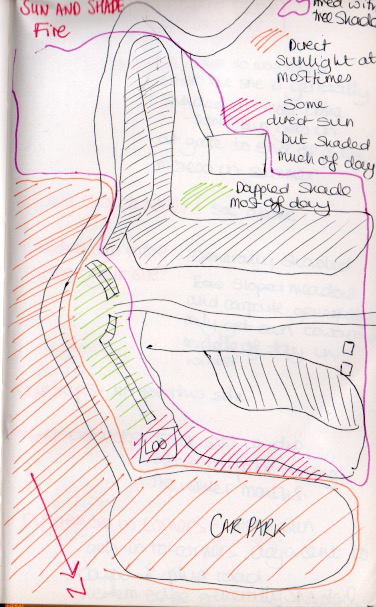 SUN AND SHADE
Fire
Tree Shade
Direct
Sunlight at
most times
Some
direct sun
but shaded
much of day
Dappled Shade
most of day
LOO
CAR PARK
N